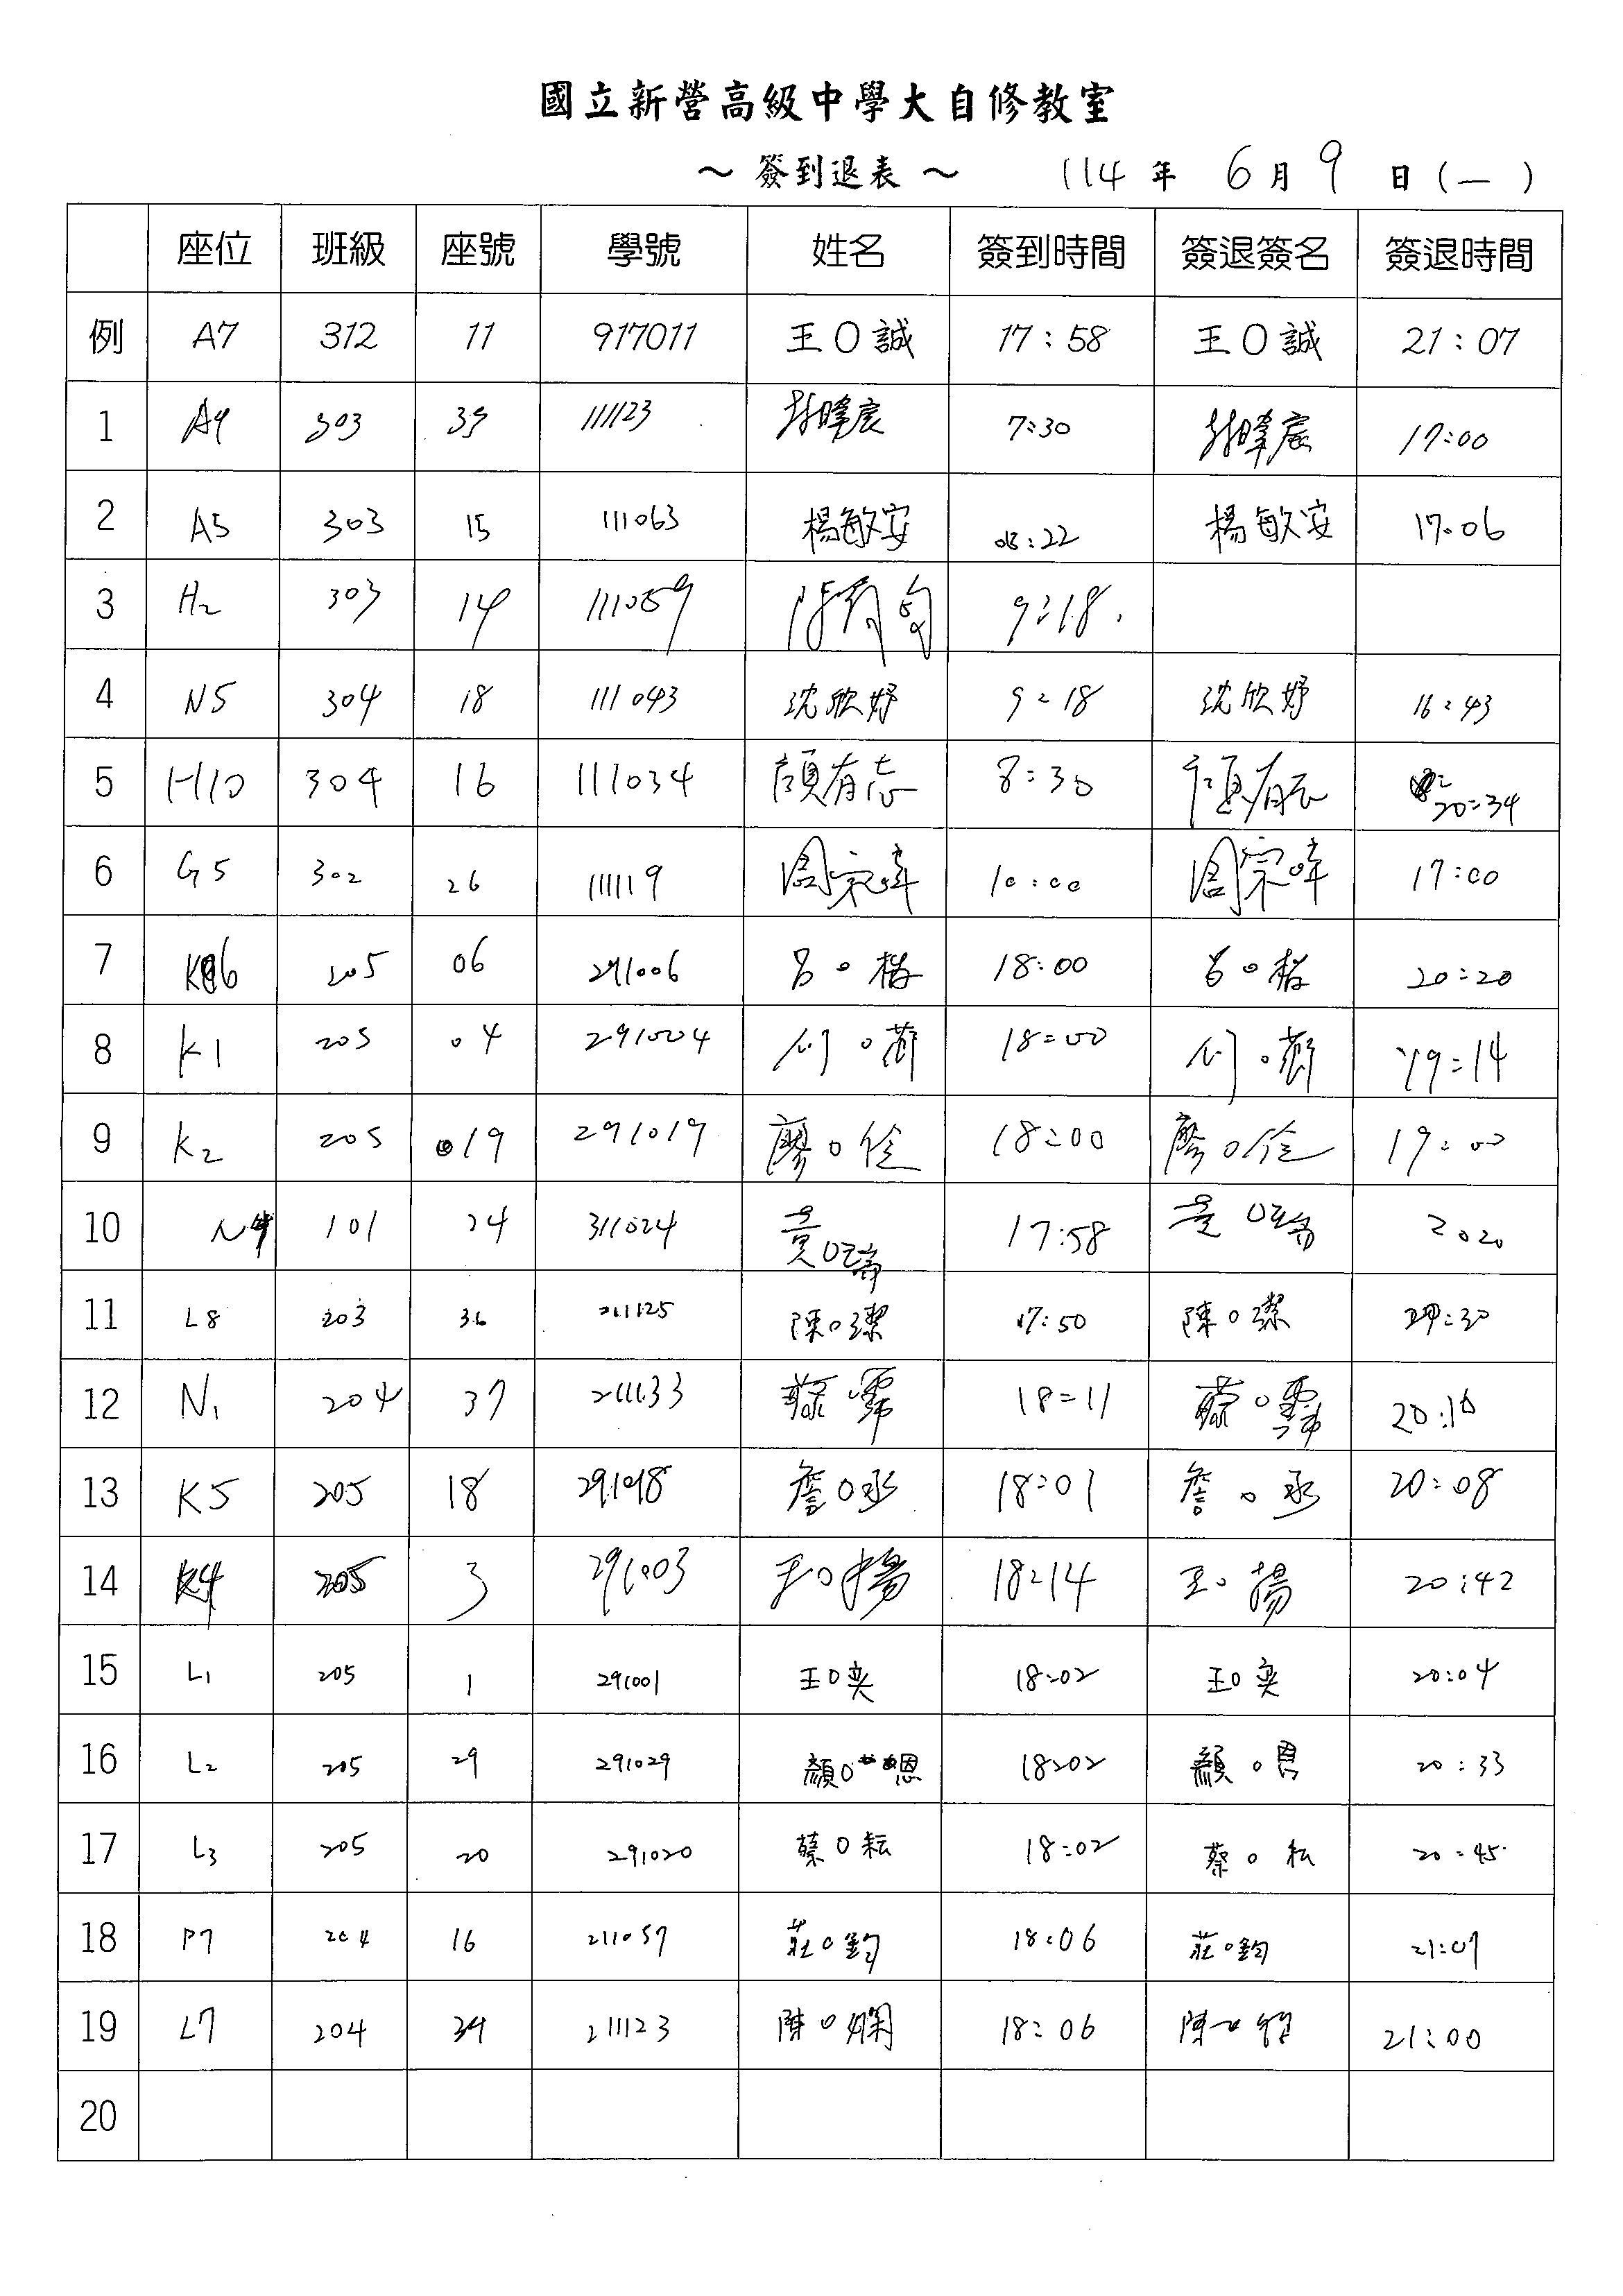 國立新營高級中學大自修教室
～ 簽到退表 ～ 114 年 6 月 9 日 (一)
座位 班級 座號 學號 姓名 簽到時間 簽退簽名 簽退時間
例 A7 312 11 917011 王O誠 17:58 王O誠 21:07
1 A9 303 35 111123 7:30 17:00
2 A5 303 15 111063 楊敏安 08:22 楊敏安 17:06
3 H2 303 14 111059 9:18
4 N5 304 18 111043 沈欣妤 9:18 沈欣妤 16:43
5 H10 304 16 111034 顏有志 8:30 顏有志 20:34
6 G5 302 26 111119 周宗暐 10:00 周宗暐 17:00
7 K6 205 06 291006 呂O楷 18:00 呂O楷 20:20
8 K1 205 04 291004 18:00 19:14
9 K2 205 019 291019 廖O佺 18:00 廖O佺 19:00
10 N4 101 24 311024 黃O 17:58 黃O 2020
11 L8 203 36 211125 陳O潔 17:50 陳O潔
12 N1 204 37 211133 蘇O霈 18:11 蘇O霈 20:10
13 K5 205 18 291018 詹O丞 18:01 詹O丞 20:08
14 K4 205 3 291003 王O揚 18:14 王O揚 20:42
15 L1 205 1 291001 王O奕 18:02 王O奕 20:04
16 L2 205 29 291029 顏O恩 18:02 顏O恩 20:33
17 L3 205 20 291020 蔡O耘 18:02 蔡O耘 20:45
18 P7 204 16 211057 莊O鈞 18:06 莊O鈞 21:07
19 L7 204 34 211123 陳O嫻 18:06 陳O 21:00
20